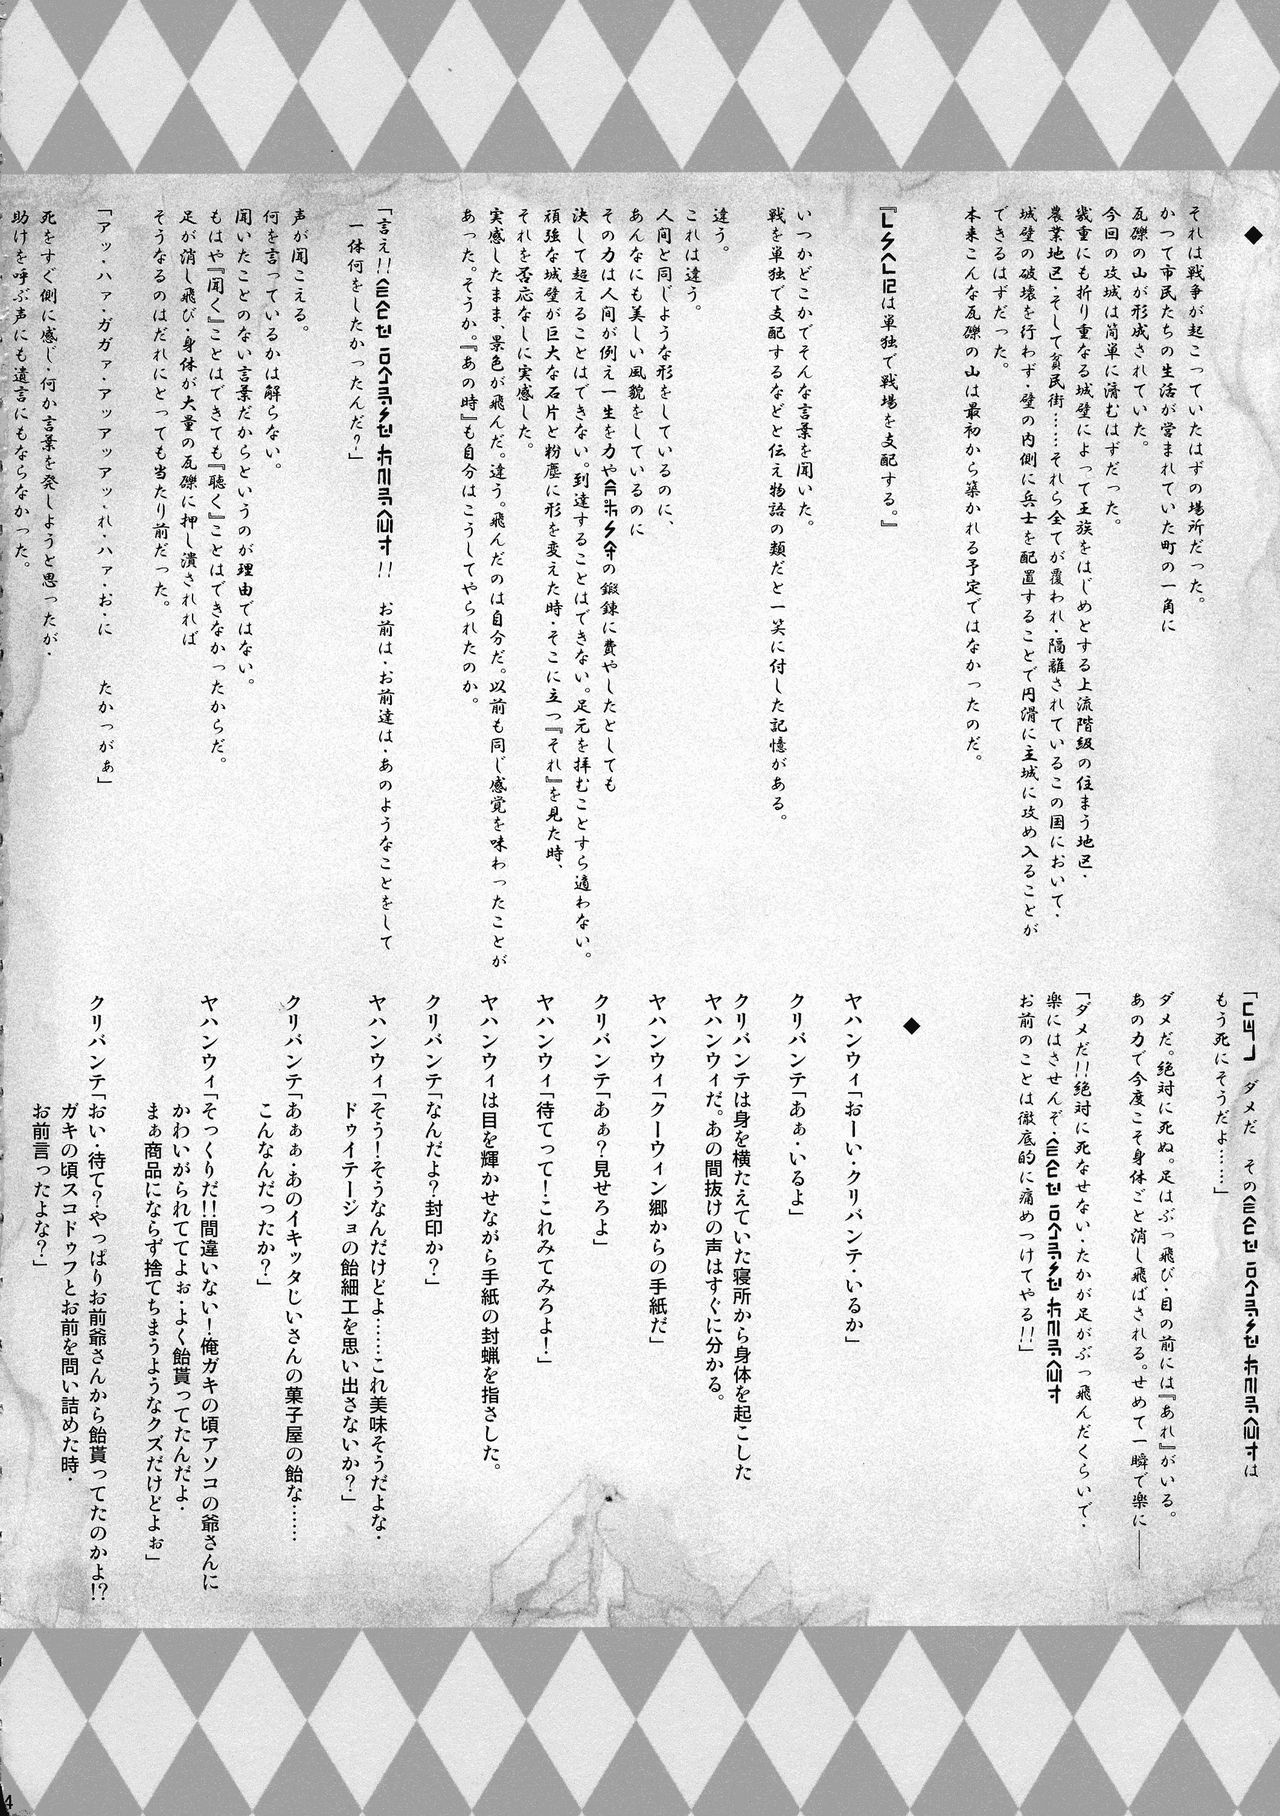 ◆
それは戦争が起こっていたはずの場所だった。
かつて市民たちの生活が営まれていた町の一角に
瓦礫の山が形成されていた。
今回の攻城は簡単に済むはずだった。
幾重にも折り重なる城壁によって王族をはじめとする上流階級の住まう地区・
農業地区・そして貧民街……それら全てが覆われ・隔離されているこの国において・
城壁の破壊を行わず・壁の内側に兵士を配置することで円滑に主城に攻め入ることが
できるはずだった。
本来こんな瓦礫の山は最初から築かれる予定ではなかったのだ。
『は単独で戦場を支配する。』
いつかどこかでそんな言葉を聞いた。
戦を単独で支配するなどと伝え物語の類だと一笑に付した記憶がある。
違う。
これは違う。
人間と同じような形をしているのに、
あんなにも美しい風貌をしているのに
その力は人間が例え一生を力やの鍛錬に費やしたとしても
決して超えることはできない。到達することはできない。足元を拝むことすら適わない。
頑強な城壁が巨大な石片と粉塵に形を変えた時・そこに立つ『それ』を見た時、
それを否応なしに実感した。
実感したまま、景色が飛んだ。違う。飛んだのは自分だ。以前も同じ感覚を味わったことが
あった。そうか。『あの時』も自分はこうしてやられたのか。
「言え!!!! お前は・お前達は・あのようなことをして
一体何をしたかったんだ?」
声が聞こえる。
何を言っているかは解らない。
聞いたことのない言葉だからというのが理由ではない。
もはや『聞く』ことはできても『聴く』ことはできなかったからだ。
足が消し飛び・身体が大量の瓦礫に押し潰されれば
そうなるのはだれにとっても当たり前だった。
「アッ・ハァ・ガガァ・アッアッアッ・れ・ハァ・お・に たかっがぁ」
死をすぐ側に感じ・何か言葉を発しようと思ったが・
助けを呼ぶ声にも遺言にもならなかった。
「 ダメだ そのは
もう死にそうだよ……」
ダメだ。絶対に死ぬ。足はぶっ飛び・目の前には『あれ』がいる。
あの力で今度こそ身体ごと消し飛ばされる。せめて一瞬で楽に――
「ダメだ!!絶対に死なせない・たかが足がぶっ飛んだくらいで・
楽にはさせんぞ・
お前のことは徹底的に痛めつけてやる!!」
◆
ヤハンウィ「おーい・クリバンテ・いるか」
クリバンテ「あぁ・いるよ」
クリバンテは身を横たえていた寝所から身体を起こした
ヤハンウィだ。あの間抜けの声はすぐに分かる。
ヤハンウィ「クーウィン郷からの手紙だ」
クリバンテ「あぁ?見せろよ」
ヤハンウィ「待てって!これみてみろよ!」
ヤハンウィは目を輝かせながら手紙の封蝋を指さした。
クリバンテ「なんだよ?封印か?」
ヤハンウィ「そう!そうなんだけどよ……これ美味そうだよな・
ドゥイテージョの飴細工を思い出さないか?」
クリバンテ「あぁぁ・あのイキッタじいさんの菓子屋の飴な……
こんなんだったか?」
ヤハンウィ「そっくりだ!!間違いない!俺ガキの頃アソコの爺さんに
かわいがられててよぉ・よく飴貰ってたんだよ・
まぁ商品にならず捨てちまうようなクズだけどよぉ」
クリバンテ「おい・待て?やっぱりお前爺さんから飴貰ってたのかよ!?
ガキの頃スコドゥフとお前を問い詰めた時・
お前言ったよな?」
4